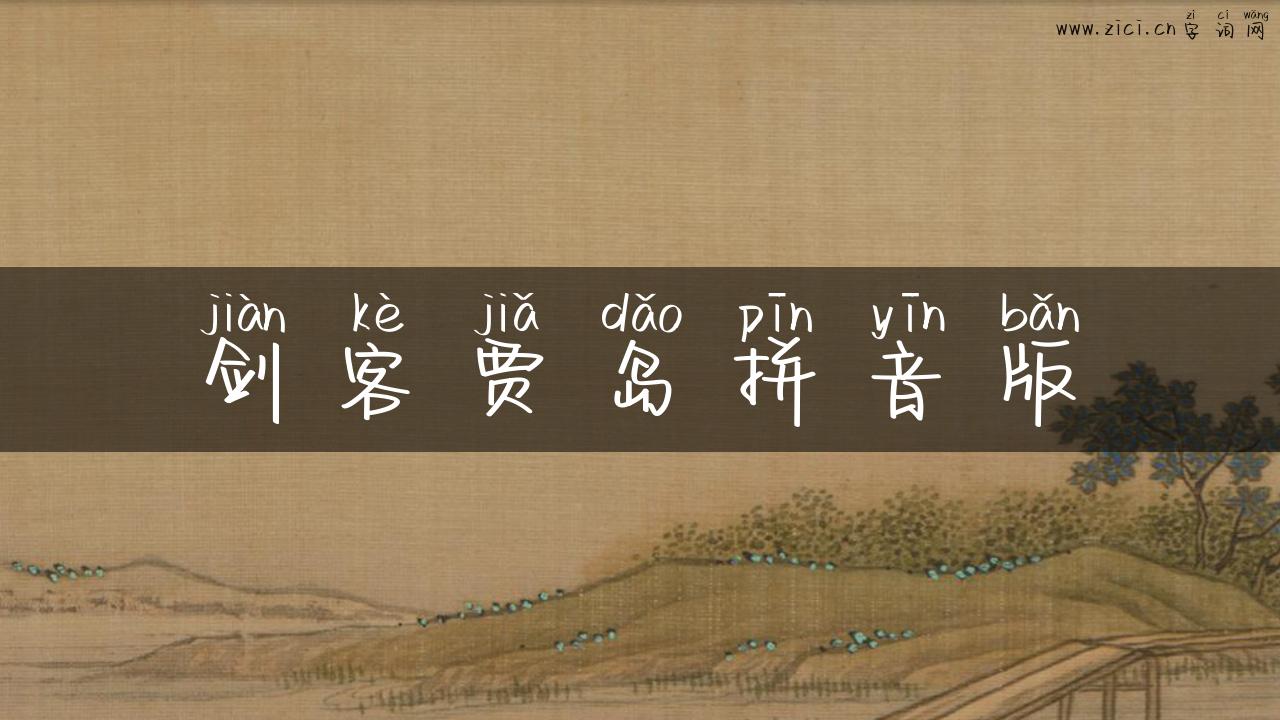 zì cí wǎng
www.zici.cn字词网
jiàn kè jiǎ dǎo pīn yīn bǎn
剑客贾岛拼音版